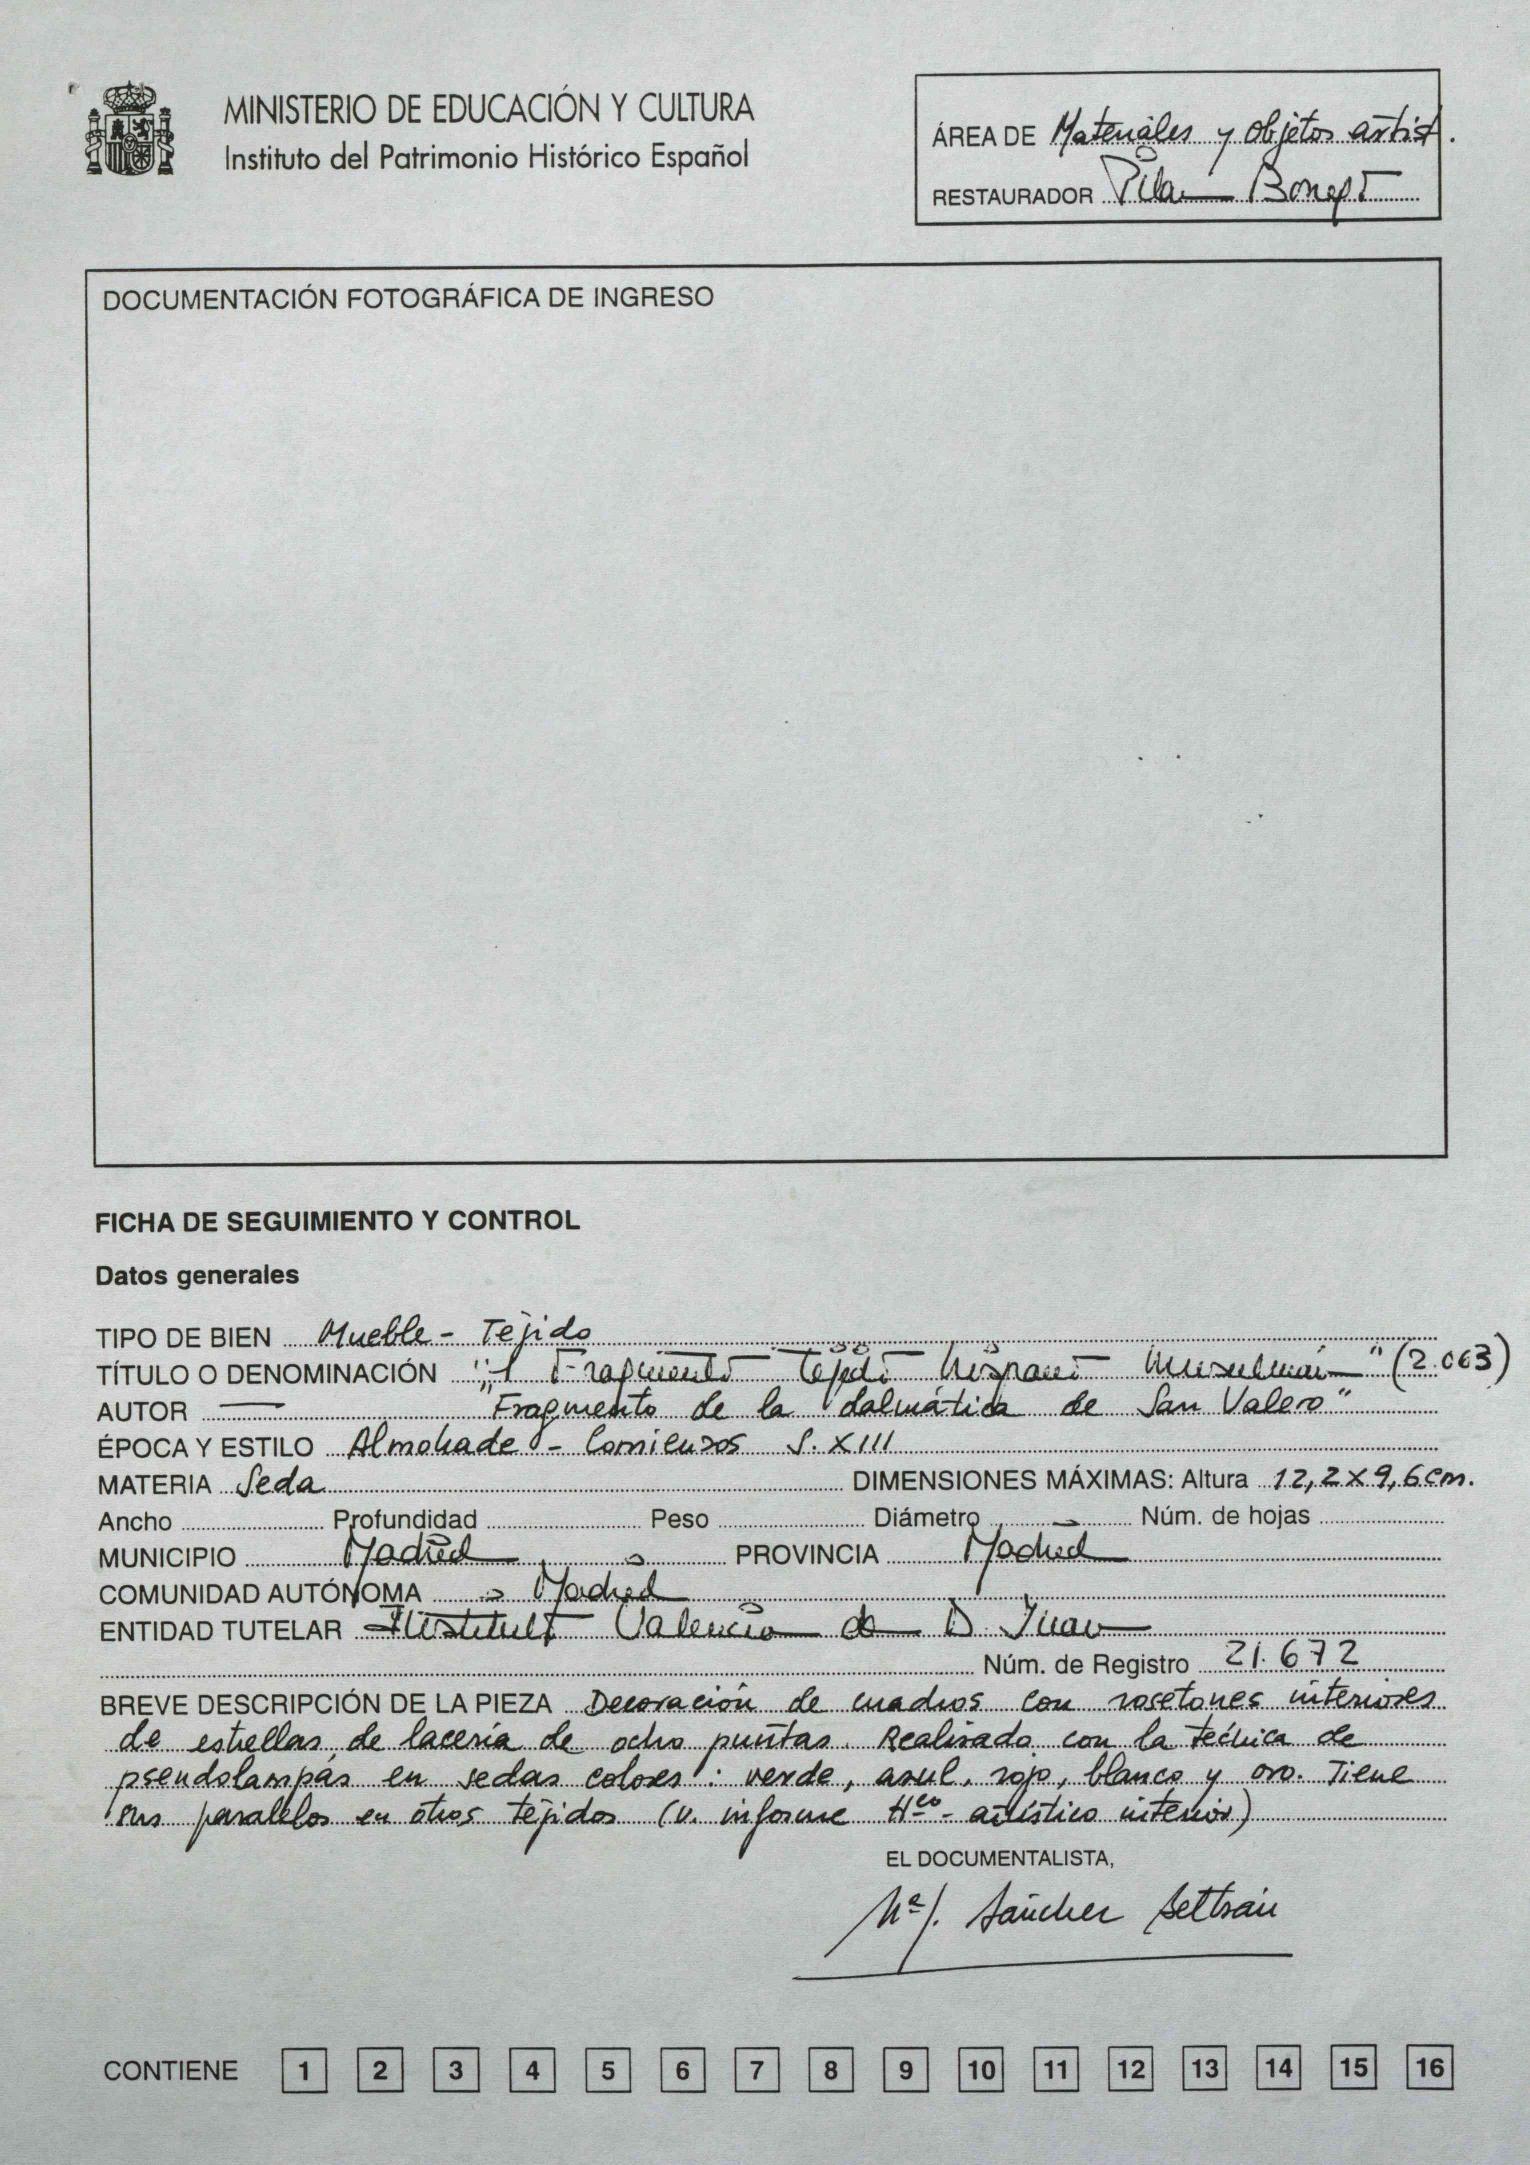 MINISTERIO DE EDUCACIÓN Y CULTURA
Instituto del Patrimonio Histórico Español
ÁREA DE Materiales y objetos artist.
RESTAURADOR Pilar
DOCUMENTACIÓN FOTOGRÁFICA DE INGRESO
FICHA DE SEGUIMIENTO Y CONTROL
Datos generales
TIPO DE BIEN Mueble - Tejido
TÍTULO O DENOMINACIÓN "1 Fragmento tejido hispano musulmán" (2.063)
AUTOR — "Fragmento de la dalmática de San Valero"
ÉPOCA Y ESTILO Almohade - Comienzos S. XIII
MATERIA Seda DIMENSIONES MÁXIMAS: Altura 12,2 x 9,6 cm.
Ancho Profundidad Peso Diámetro Núm. de hojas
MUNICIPIO Madrid PROVINCIA Madrid
COMUNIDAD AUTÓNOMA Madrid
ENTIDAD TUTELAR Instituto Valencia de D. Juan
Núm. de Registro 21.672
BREVE DESCRIPCIÓN DE LA PIEZA Decoración de cuadros con rosetones interiores
de estrellas de lacería de ocho puntas. Realizado con la técnica de
pseudolampás en sedas colores: verde, azul, rojo, blanco y oro. Tiene
sus paralelos en otros tejidos (v. informe Hco-artístico interior)
EL DOCUMENTALISTA,
Mª J. Sánchez Beltrán
CONTIENE 1 2 3 4 5 6 7 8 9 10 11 12 13 14 15 16